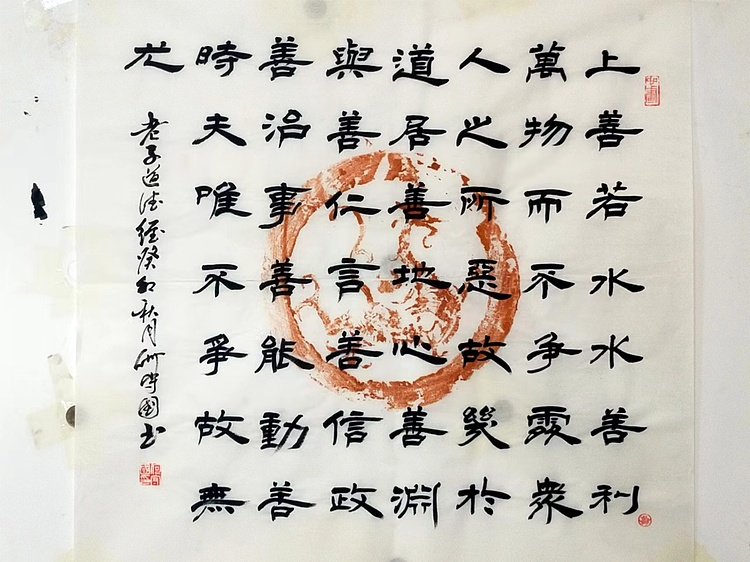 上善若水水善利
萬物而不争處衆
人之所惡故幾於
道居善地心善淵
與善仁言善信政
善治事善能動善
時夫唯不爭故無
尤
老子道德經癸卯秋月時國书